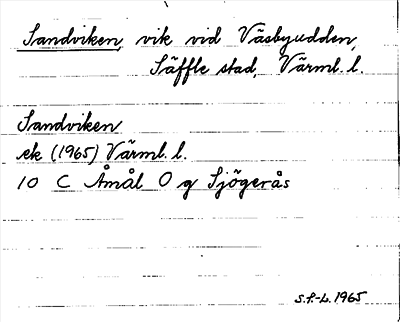 Sandviken, vik vid Väsbyudden,
Säffle stad, Värml. l.
Sandviken
ek (1965) Värml. l.
10 C Åmål O g Sjögerås
S.F.-L. 1965